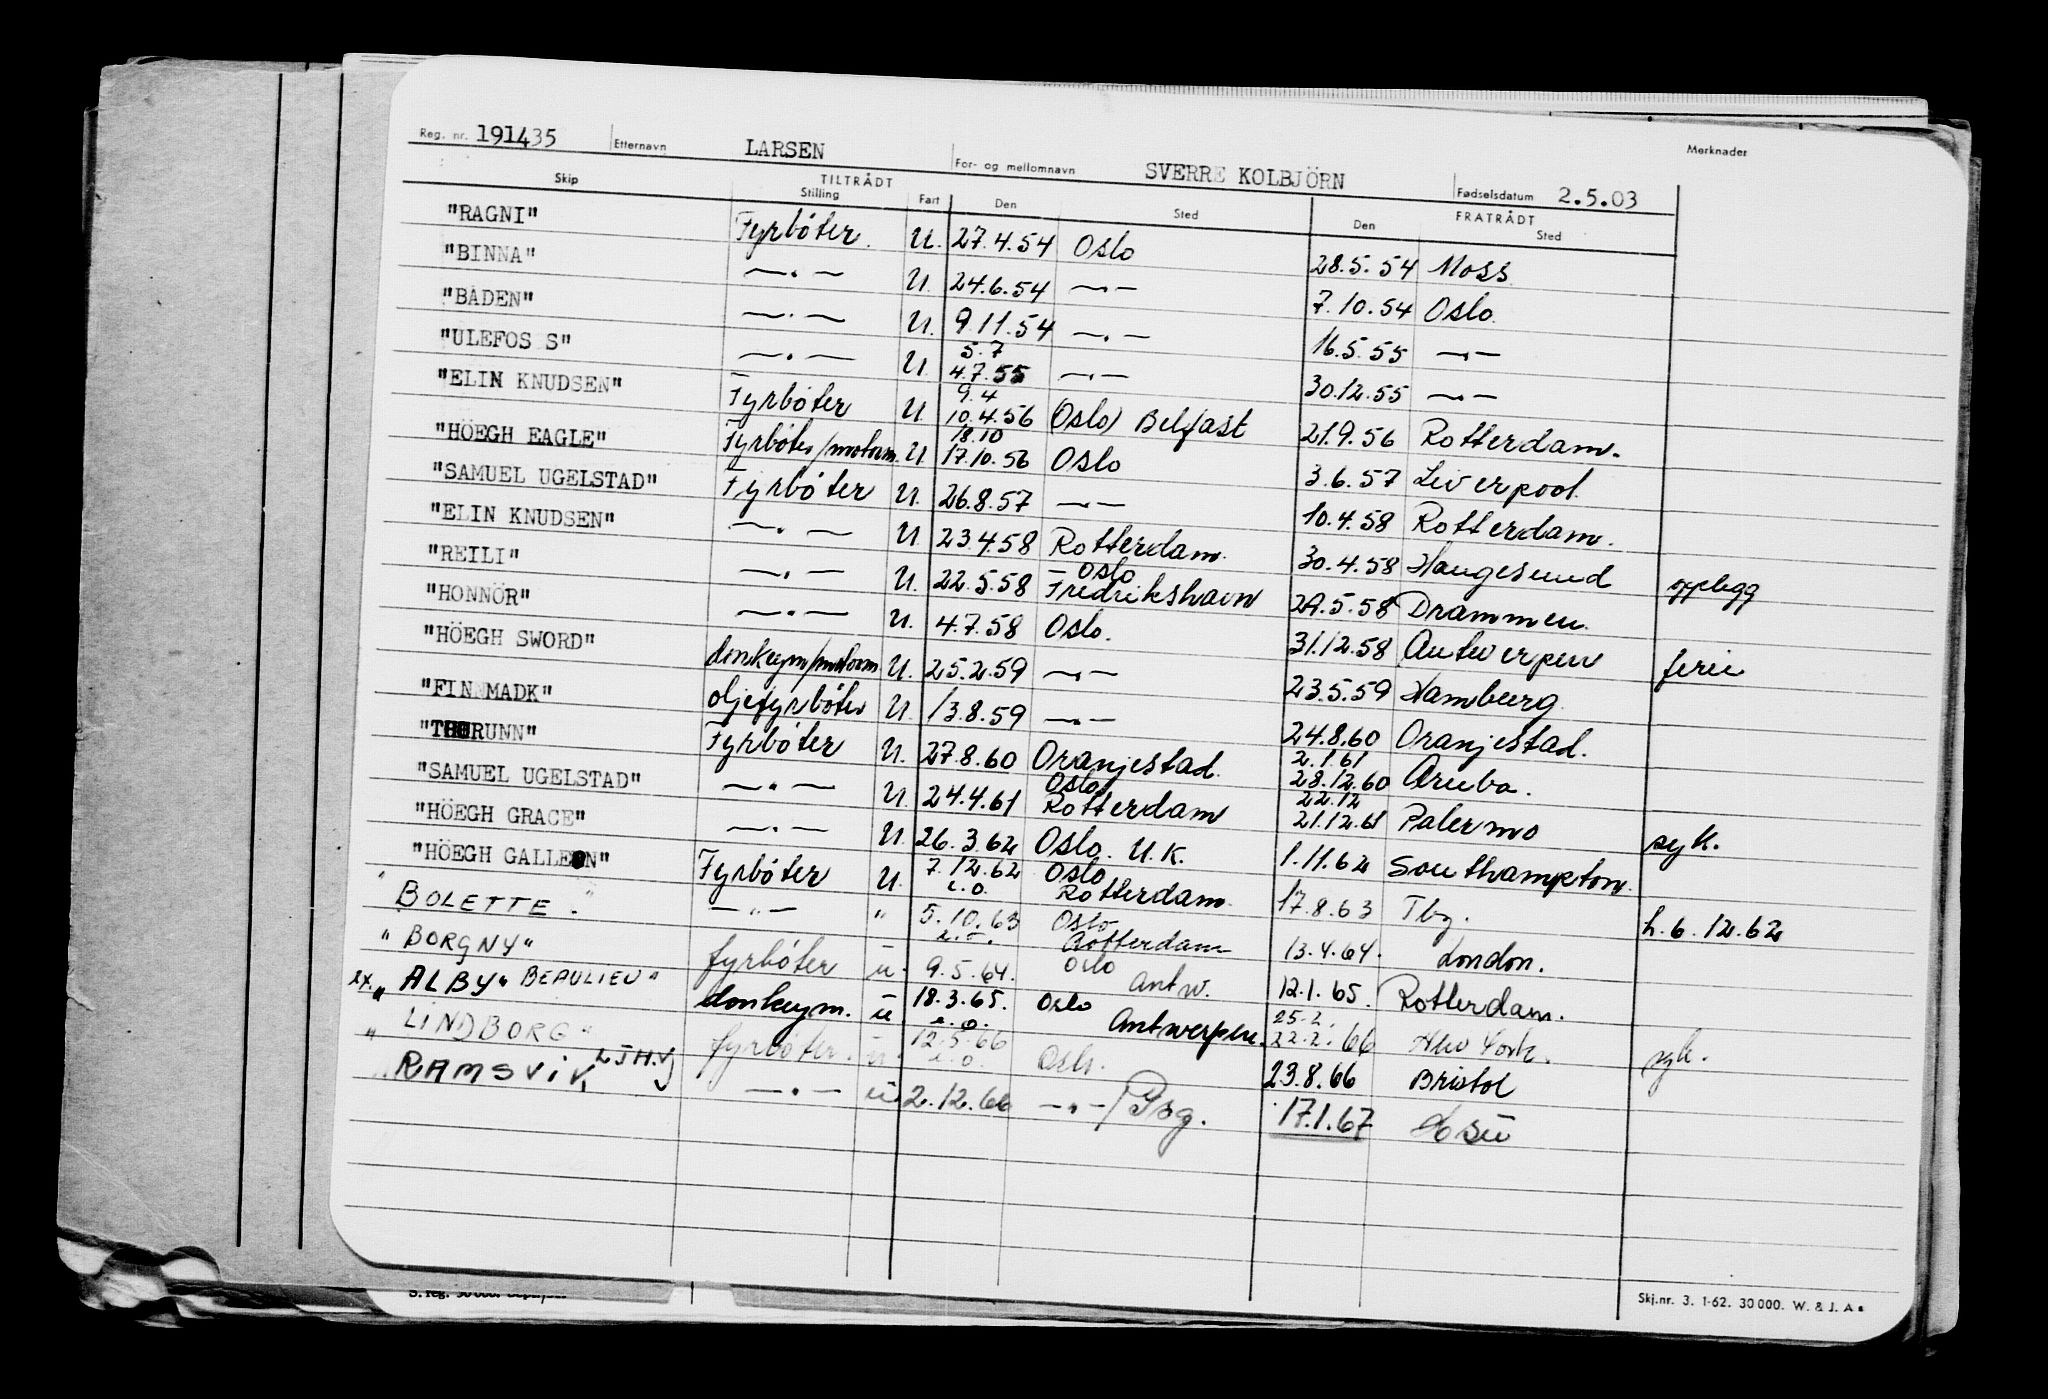 Reg. nr. 191435 Etternavn LARSEN For- og mellomnavn SVERRE KOLBJÖRN Fødselsdatum 2.5.03 Merknader
Skip TILTRÅDT Stilling Fart Den Sted FRATRÅDT Den Sted
"RAGNI" Fyrbøter. U. 27.4.54 Oslo 28.5.54 Moss
"BINNA" —"— U. 24.6.54 —"— 7.10.54 Oslo.
"BÅDEN" —"— U. 9.11.54 —"— 16.5.55 —"—
"ULEFOS S" —"— U. 5.7 4.7.55 —"— 30.12.55 —"—
"ELIN KNUDSEN" Fyrbøter U. 9.4 10.4.56 Oslo/Belfast 21.9.56 Rotterdam.
"HÖEGH EAGLE" Fyrbøter/motorm. U 18.10 17.10.56 Oslo 3.6.57 Liverpool.
"SAMUEL UGELSTAD" Fyrbøter U. 26.8.57 —"— 10.4.58 Rotterdam.
"ELIN KNUDSEN" —"— U. 23.4.58 Rotterdam. 30.4.58 Haugesund opplegg
"REILI" —"— U. 22.5.58 Oslo Fredrikshavn 29.5.58 Drammen.
"HONNÖR" —"— U. 4.7.58 Oslo. 31.12.58 Antwerpen ferie
"HÖEGH SWORD" donkeym/motorm U. 25.2.59 —"— 23.5.59 Hamburg.
"FINNMADK" oljefyrbøter U. 13.8.59 —"— 24.8.60 Oranjestad.
"THORUNN" Fyrbøter U. 27.8.60 Oranjestad. 2.1.61 28.12.60 Aruba.
"SAMUEL UGELSTAD" —"— U. 24.4.61 Oslo Rotterdam 22.12 21.12.61 Palermo syk.
"HÖEGH GRACE" —"— U. 26.3.62 Oslo. U.K. 1.11.62 Southampton.
"HÖEGH GALLEON" Fyrbøter U. 7.12.62 i.o. Oslo Rotterdam. 17.8.63 Tbg. h. 6.12.62
"BOLETTE." —"— " 5.10.63 i.o. Oslo Rotterdam 13.4.64. London.
"BORGNY" fyrbøter u. 9.5.64. Oslo Antw. 12.1.65. Rotterdam.
ex. "ALBY" BEAULIEU" donkeym. u 18.3.65. i.o. Oslo Antwerpen. 25.2. 22.2.66 New York. syk.
"LINDBORG" fyrbøter. u. 12.5.66 i.o Oslo. 23.8.66 Bristol
"RAMSVIK —"— u 2.12.66 —"—/Psg. 17.1.67
S. reg. 30 000.
Skj.nr. 3. 1-62. 30 000. W. & J. A s